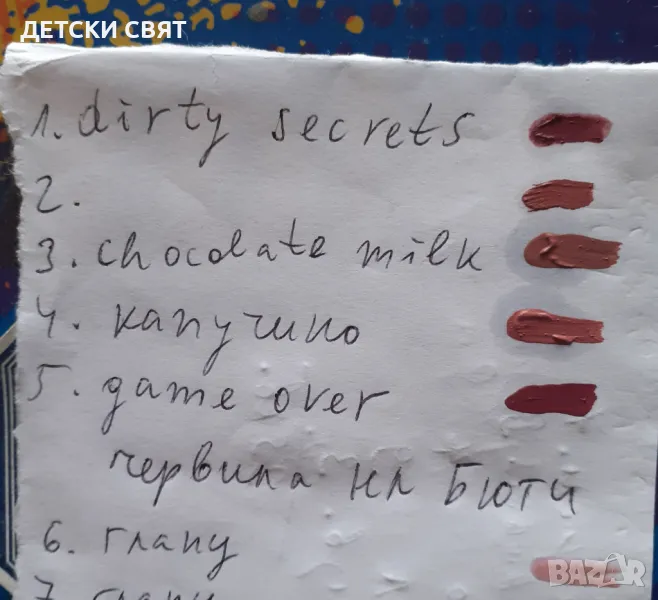 ДЕТСКИ СВЯТ
1. dirty secrets
2.
3. chocolate milk
4. капучино
5. game over
червила НЛ Бюти
6. гланц
7. гланц
BAZAR